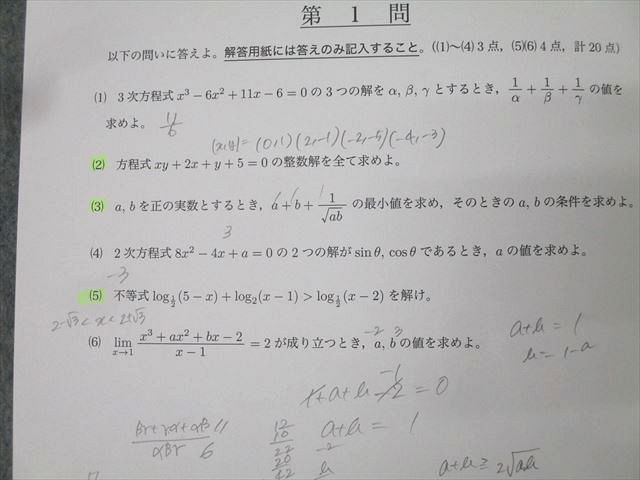 第 1 問
以下の問いに答えよ。解答用紙には答えのみ記入すること。((1)〜(4) 3 点, (5)(6) 4 点, 計 20 点)
(1) 3 次方程式 x³ − 6x² + 11x − 6 = 0 の 3 つの解を α, β, γ とするとき, 1/α + 1/β + 1/γ の値を
求めよ。 11/6
(x,y)= (0,1)(2,-1)(-2,-5)(-4,-3)
(2) 方程式 xy + 2x + y + 5 = 0 の整数解を全て求めよ。
(3) a, b を正の実数とするとき, a + b + 1/√ab の最小値を求め, そのときの a, b の条件を求めよ。
3
(4) 2 次方程式 8x² − 4x + a = 0 の 2 つの解が sin θ, cos θ であるとき, a の値を求めよ。
-3
(5) 不等式 log_{1/2}(5 − x) + log₂(x − 1) > log_{1/2}(x − 2) を解け。
2-√3 < x < 2+√3
-2 3
(6) lim_{x→1} (x³ + ax² + bx − 2)/(x − 1) = 2 が成り立つとき, a, b の値を求めよ。
a+b = 1
b = 1-a
-1
1+a+b-2 = 0
βγ+γα+αβ/αβγ 11/6
a+b = 1
12
10
22
20
42
-2
b
a+b ≧ 2√ab